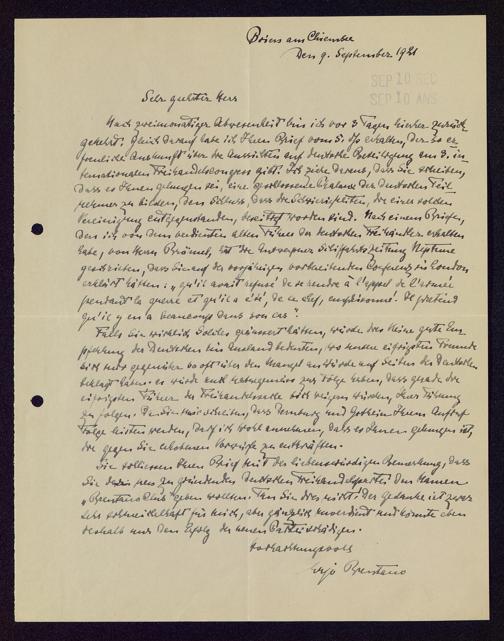 Prien am Chiemsee
Den 9. September 1921
SEP 10 REC
SEP 10 ANS
Sehr geehrter Herr
Nach zweimonatiger Abwesenheit bin ich vor 3 Tagen hierher zurück-
gekehrt. Gleich darauf habe ich Ihren Brief vom 5. erhalten, der so er-
freuliche Auskunft über die Aussichten auf deutsche Beteiligung am 3. in-
ternationalen Freihandelscongress gibt. Ich ziehe daraus, dass Sie schreiben,
dass es Ihnen gelungen sei, eine geschlossene Phalanx der deutschen Teil-
nehmer zu bilden, den Schluss, dass die Schwierigkeiten, die einer solchen
Vereinigung entgegenstanden, beseitigt worden sind. Nach einem Briefe,
den ich von dem verdienten alten Führer der deutschen Freihändler erhalten
habe, von Herrn Brömel, hat die Antwerpener Schiffahrtszeitung Neptune
geschrieben, dass Sie auf der vorjährigen vorbereitenden Conferenz in London
erklärt hätten: "qu'il avait refusé de se rendre à l'appel de l'armée
pendant la guerre et qu'il a été, de ce chef, emprisonné. Il prétend
qu'il y en a beaucoup dans son cas".
Falls Sie wirklich Solches geäussert hätten, würde das keine gute Em-
pfehlung der Deutschen im Ausland bedeuten, wo unsere eifrigsten Freunde
sich mir gegenüber so oft über den Mangel an Würde auf Seiten der Deutschen
beklagt haben. Es würde auch naturgemäss zur Folge haben, dass gerade die
eifrigsten Führer der Freihandelssache sich weigern würden, Ihrer Führung
zu folgen. Da Sie mir schreiben, dass Dernburg und Gothein Ihrem Aufruf
Folge leisten werden, darf ich wohl annehmen, dass es Ihnen gelungen ist,
die gegen Sie erhobenen Vorwürfe zu entkräften.
Sie schliessen Ihren Brief mit der liebenswürdigen Bemerkung, dass
Sie dem neu zu gründenden deutschen Freihandels den Namen
"Brentano Club" geben wollten. Tun Sie dies nicht! Der Gedanke ist zwar
sehr schmeichelhaft für mich, aber gänzlich unverdient und könnte eben
deshalb nur dem Erfolg der neuen Partei schädigen.
Hochachtungsvoll
Lujo Brentano